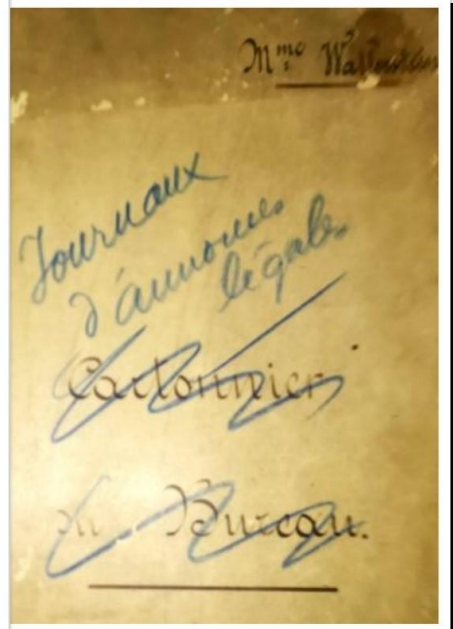 Mme
Journaux
d'annonces
légales
Cartonnier
du Bureau.